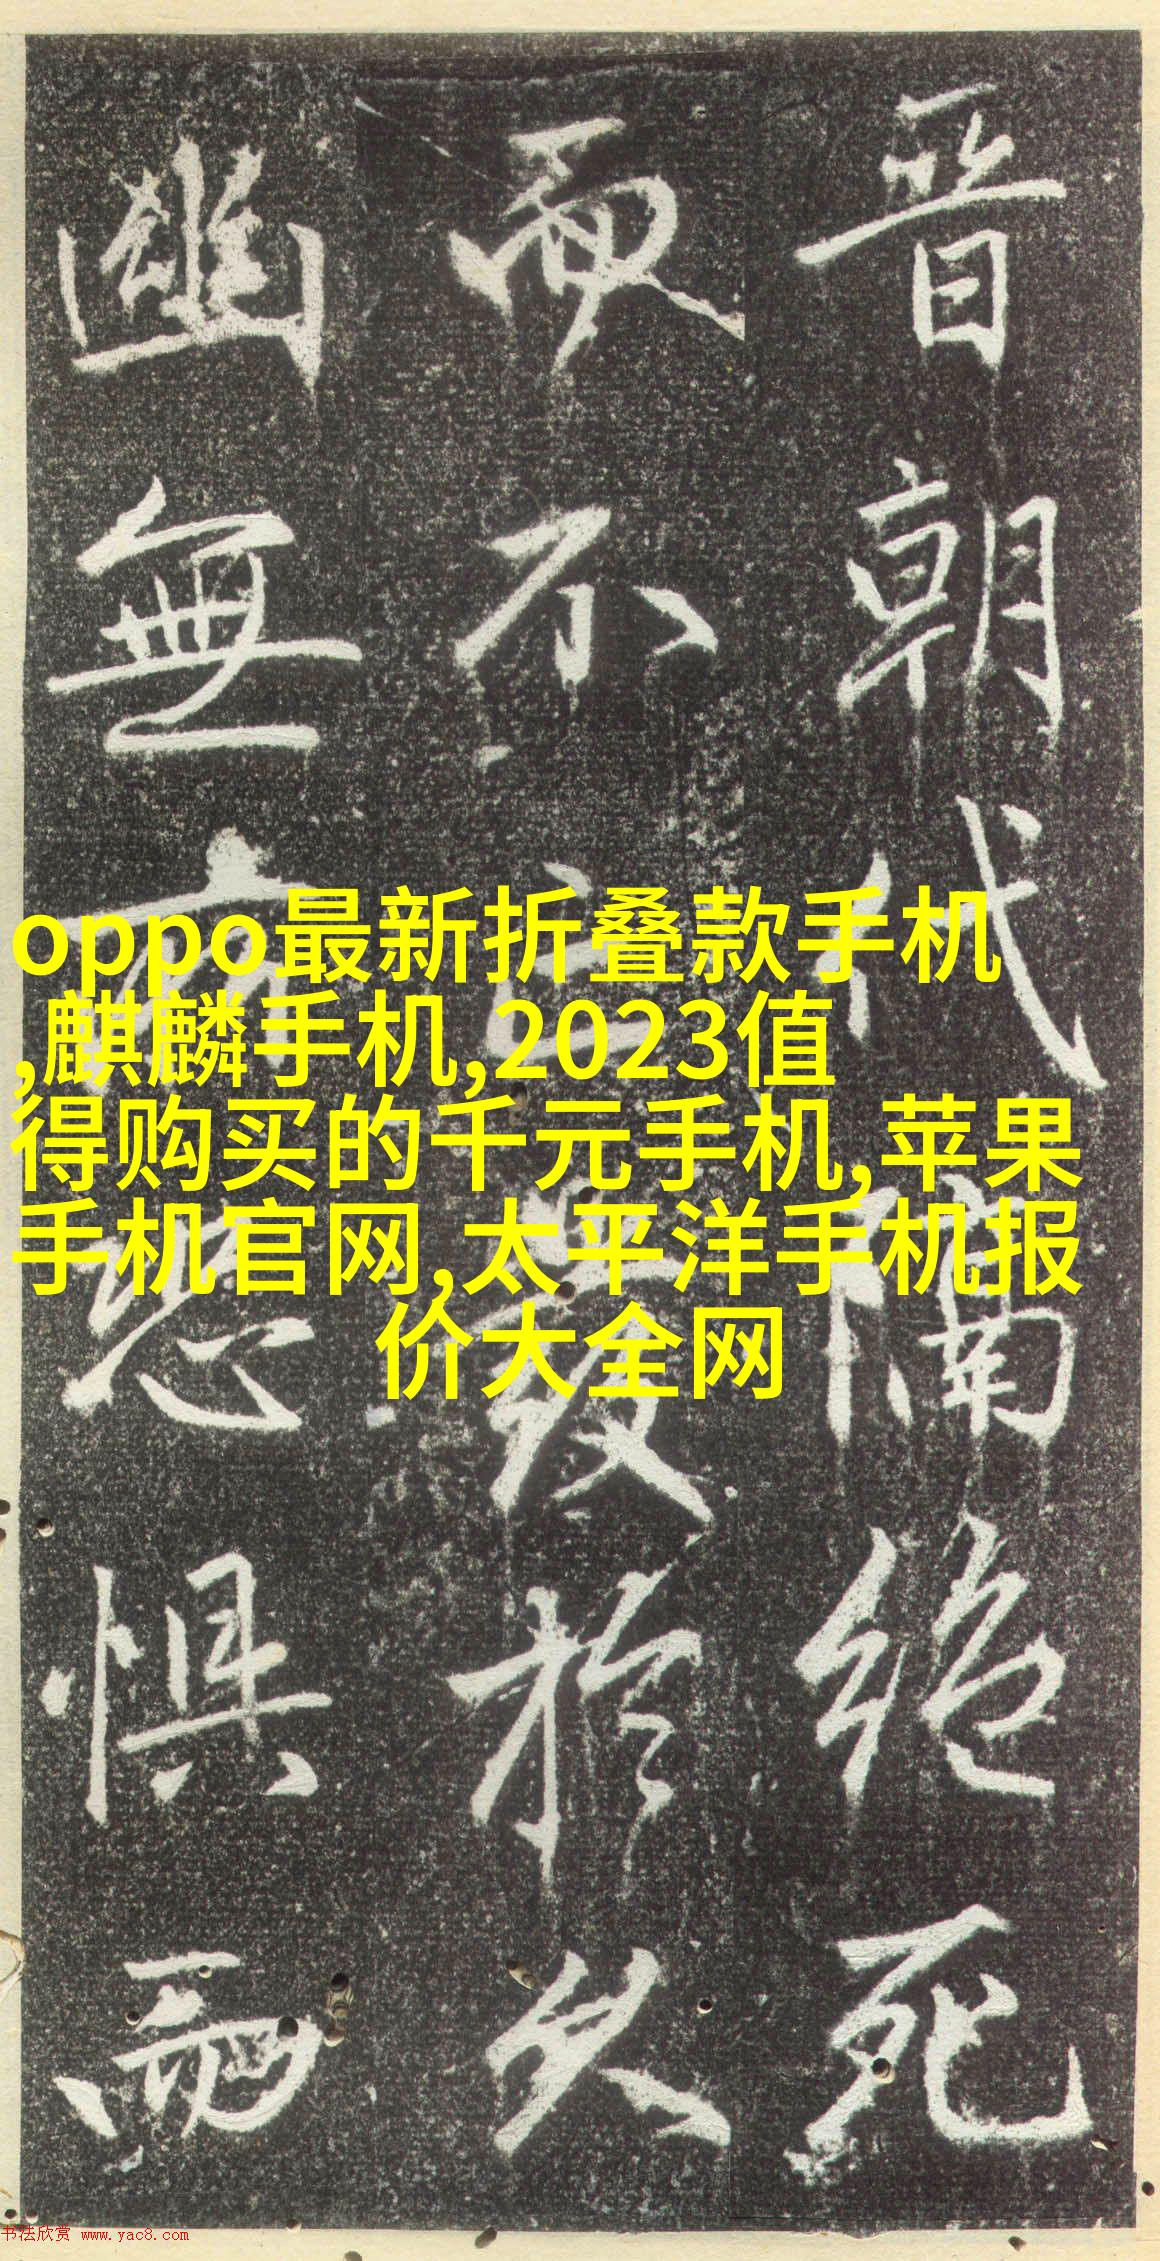 晋朝代隔絕死
而不發於久
幽無恐懼而
oppo最新折叠款手机
,麒麟手机,2023值
得购买的千元手机,苹果
手机官网,太平洋手机报
价大全网
书法欣赏 www.yac8.com